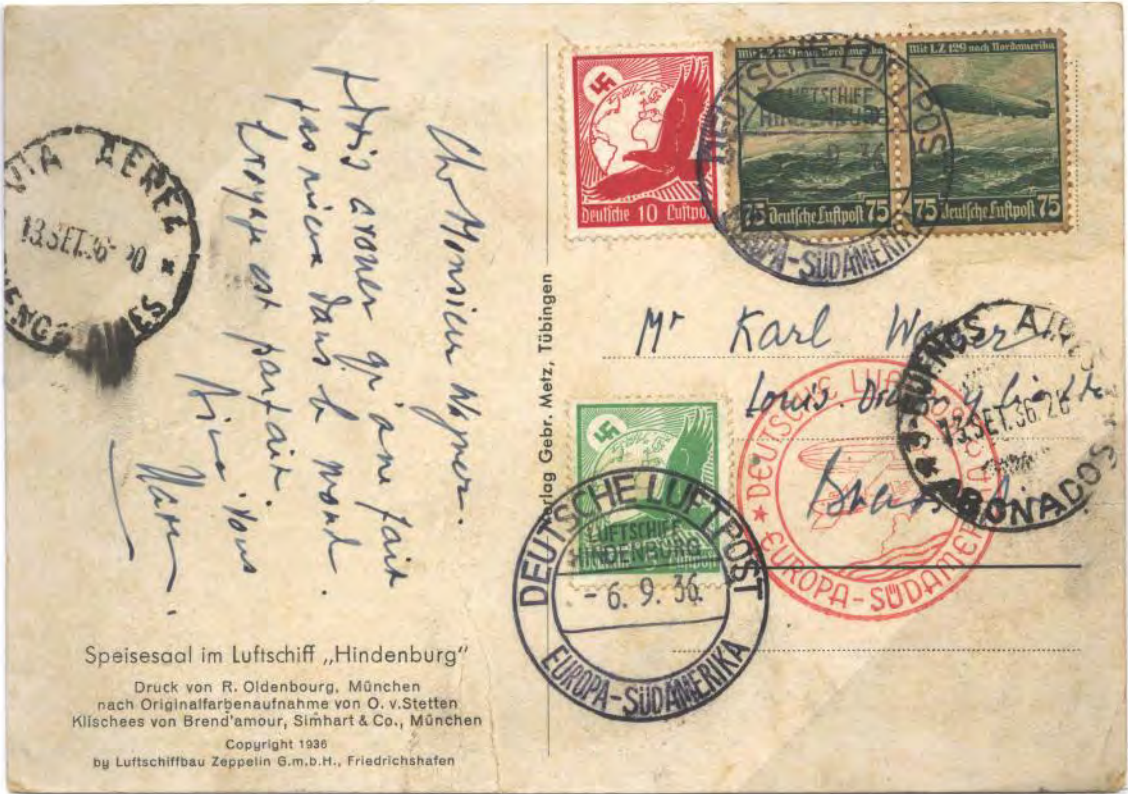 Cher Monsieur Wagner.
Dois avouer qu'on ne fait
pas mieux dans le monde.
Voyage est parfait.
Vous
Speisesaal im Luftschiff „Hindenburg"
Druck von R. Oldenbourg, München
nach Originalfarbenaufnahme von O. v. Stetten
Klischees von Brend'amour, Simhart & Co., München
Copyright 1936
by Luftschiffbau Zeppelin G.m.b.H., Friedrichshafen
VIA AEREA
13.SET.36
BUENOS AIRES
Verlag Gebr. Metz, Tübingen
Deutsche 10 Luftpost
Mit LZ 129 nach Nordamerika
75 Deutsche Luftpost 75
Mit LZ 129 nach Nordamerika
75 Deutsche Luftpost 75
DEUTSCHE LUFTPOST
LUFTSCHIFF
HINDENBURG
EUROPA-SÜDAMERIKA
Mr Karl Wagner
Louis
BUENOS AIRES
13.SET.36
ABONADOS
DEUTSCHE LUFTPOST
EUROPA-SÜDAMERIKA
Deutsche 5 Luftpost
DEUTSCHE LUFTPOST
LUFTSCHIFF
HINDENBURG
- 6. 9. 36.
EUROPA-SÜDAMERIKA